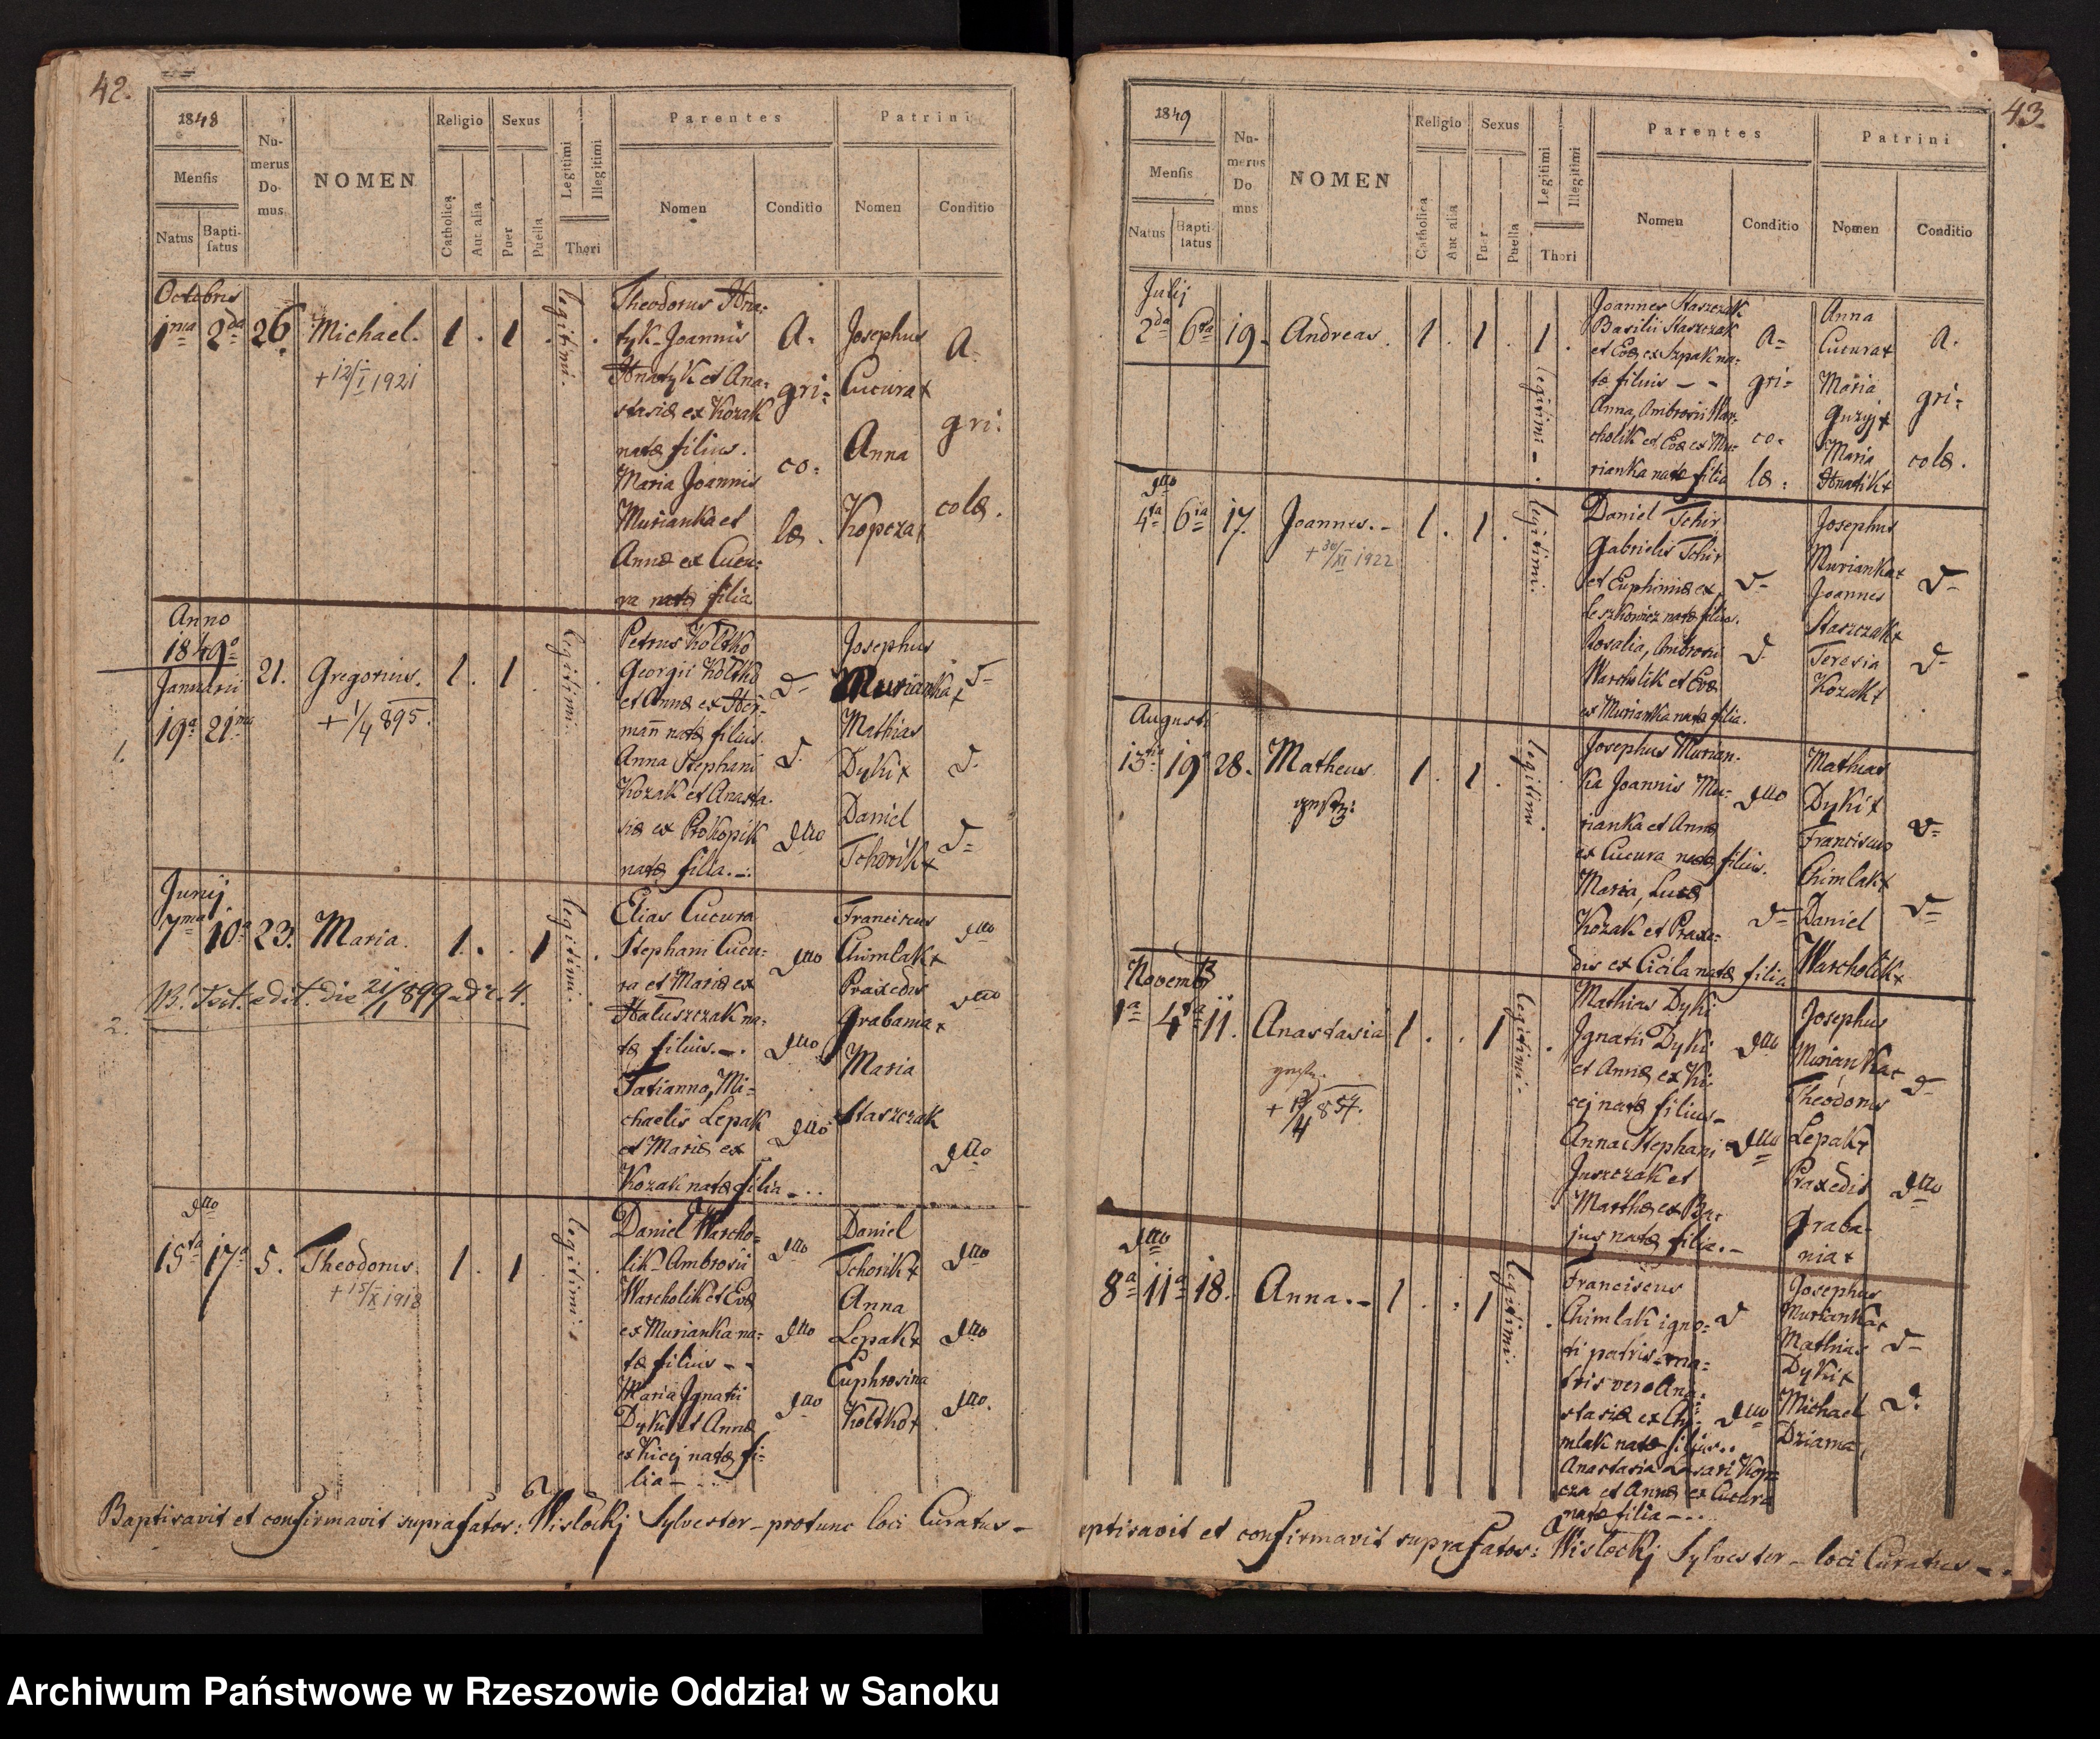 42.
1848
Mensis
Natus
Bapti-
satus
Nu-
merus
Do-
mus
NOMEN
Religio
Catholica
Aut alia
Sexus
Puer
Puella
Legitimi
Illegitimi
Thori
Parentes
Nomen
Conditio
Patrini
Nomen
Conditio
Octobris
1ma 2da 26. Michael. 1 . 1 . legitimi. .
+12/I 1921
Theodorus Hna-
tyk Joannis
Hnatyk et Ana-
stasiæ ex Kozak
natæ filius.
Maria Joannis
Murianka et
Annæ ex Cucu-
ra natæ filia
A-
gri-
co-
læ.
Josephus
Cucura+
Anna
Kopcza+
A-
gri-
colæ.
Anno
1849o
Januarii
19a 21ma 21. Gregorius. 1 . 1 . legitimi. .
+1/4 895.
1.
Petrus Koltko
Georgii Koltko
et Annæ ex Her-
mañ natæ filius.
Anna Stephani
Kozak et Anasta-
siæ ex Prokopik
natæ filia.-.
d-
d.
dtto
Josephus
Murianka+
Mathias
Dyki+
Daniel
Tchorik+
d-
d.
d-
Junij
7ma 10a 23. Maria. 1 . . 1 legitimi. .
NB. Test. edit. die 21/1 899 ad N. 4.
2.
Elias Cucura
Stephani Cucu-
ra et Mariæ ex
Haluszczak na-
tæ filius.-.
Tatianna, Mi-
chaelis Lepak
et Mariæ ex
Kozak natæ filia-..
dtto
dtto
dtto
Franciscus
Chimlak+
Praxedis
Grabania+
Maria
Staszczak
dtto
dtto
dtto
dtto
15ta 17a 5. Theodorus. 1 . 1 . legitimi. .
+15/X 1918
Daniel Warcho-
lik Ambrosii
Warcholik et Evæ
ex Murianka na-
tæ filius - -
Maria Ignatii
Dyki et Annæ
ex Kicej natæ fi-
lia - ..
dtto
dtto
dtto
Daniel
Tchorik+
Anna
Lepak+
Euphrosina
Koltko+
dtto
dtto
dtto.
Baptisavit et confirmavit suprafatos: Wislockj Sylvester - protunc loci Curatus -
43.
1849
Mensis
Natus
Bapti-
satus
Nu-
merus
Do
mus
NOMEN
Religio
Catholica
Aut alia
Sexus
Puer
Puella
Legitimi
Illegitimi
Thori
Parentes
Nomen
Conditio
Patrini
Nomen
Conditio
Julij
2da 6ta 19. Andreas. 1 . 1 . 1 .
legitimi - .
Joannes Staszczak
Basilii Staszczak
et Evæ ex Szpak na-
tæ filius - -
Anna, Ambrosii War-
cholik et Evæ ex Mu-
rianka natæ filia
A-
gri-
co-
læ.
Anna
Cucura+
Maria
Guzyj+
Maria
Hnatik+
A.
gri-
colæ.
dtto
4ta 6ta 17. Joannes. - 1 . 1 . legitimi.
+30/XI 1922
Daniel Tchir
Gabrielis Tchir
et Euphimiæ ex
Leszkowicz natæ filius.
Rosalia, Ambrosii
Warcholik et Evæ
ex Murianka natæ filia.
d-
d.
Josephus
Murianka+
Joannes
Staszczak+
Teresia
Kozak+
d-
d-
Augusti
13tia 19a 28. Matheus 1 . 1 . legitimi.
Josephus Murian-
ka Joannis Mu-
rianka et Annæ
ex Cucura natæ filius.
Maria, Lucæ
Kozak et Praxe-
dis ex Cicila natæ filia
dtto
d-
Mathias
Dyki+
Franciscus
Chimlak+
Daniel
Warcholik+
d-
d-
Novembr
1a 4ta 11. Anastasia 1 . . 1 legitimi. .
Mathias Dyki
Ignatii Dyki
et Annæ ex Ki-
cej natæ filius -
Anna Stephani
Juszczak et
Marthæ ex Ba-
jus natæ filia. -
dtto
dtto
Josephus
Murianka+
Theodorus
Lepak+
Praxedis
Graba-
nia+
d-
dtto
dtto
8a 11a 18. Anna. - 1 . . 1 legitimi. .
Franciscus
Chimlak igno-
ti patris - ma-
tris vero Ana-
stasiæ ex Chi-
mlak natæ filius..
Anastasia Lasari Kop-
cza et Annæ ex Cucura
natæ filia - ..
d
dtto
Josephus
Murianka+
Mathias
Dyki+
Michael
Dziama,
d-
d.
aptisavit et confirmavit suprafatos: Wislockj Sylvester - loci Curatus - .
Archiwum Państwowe w Rzeszowie Oddział w Sanoku